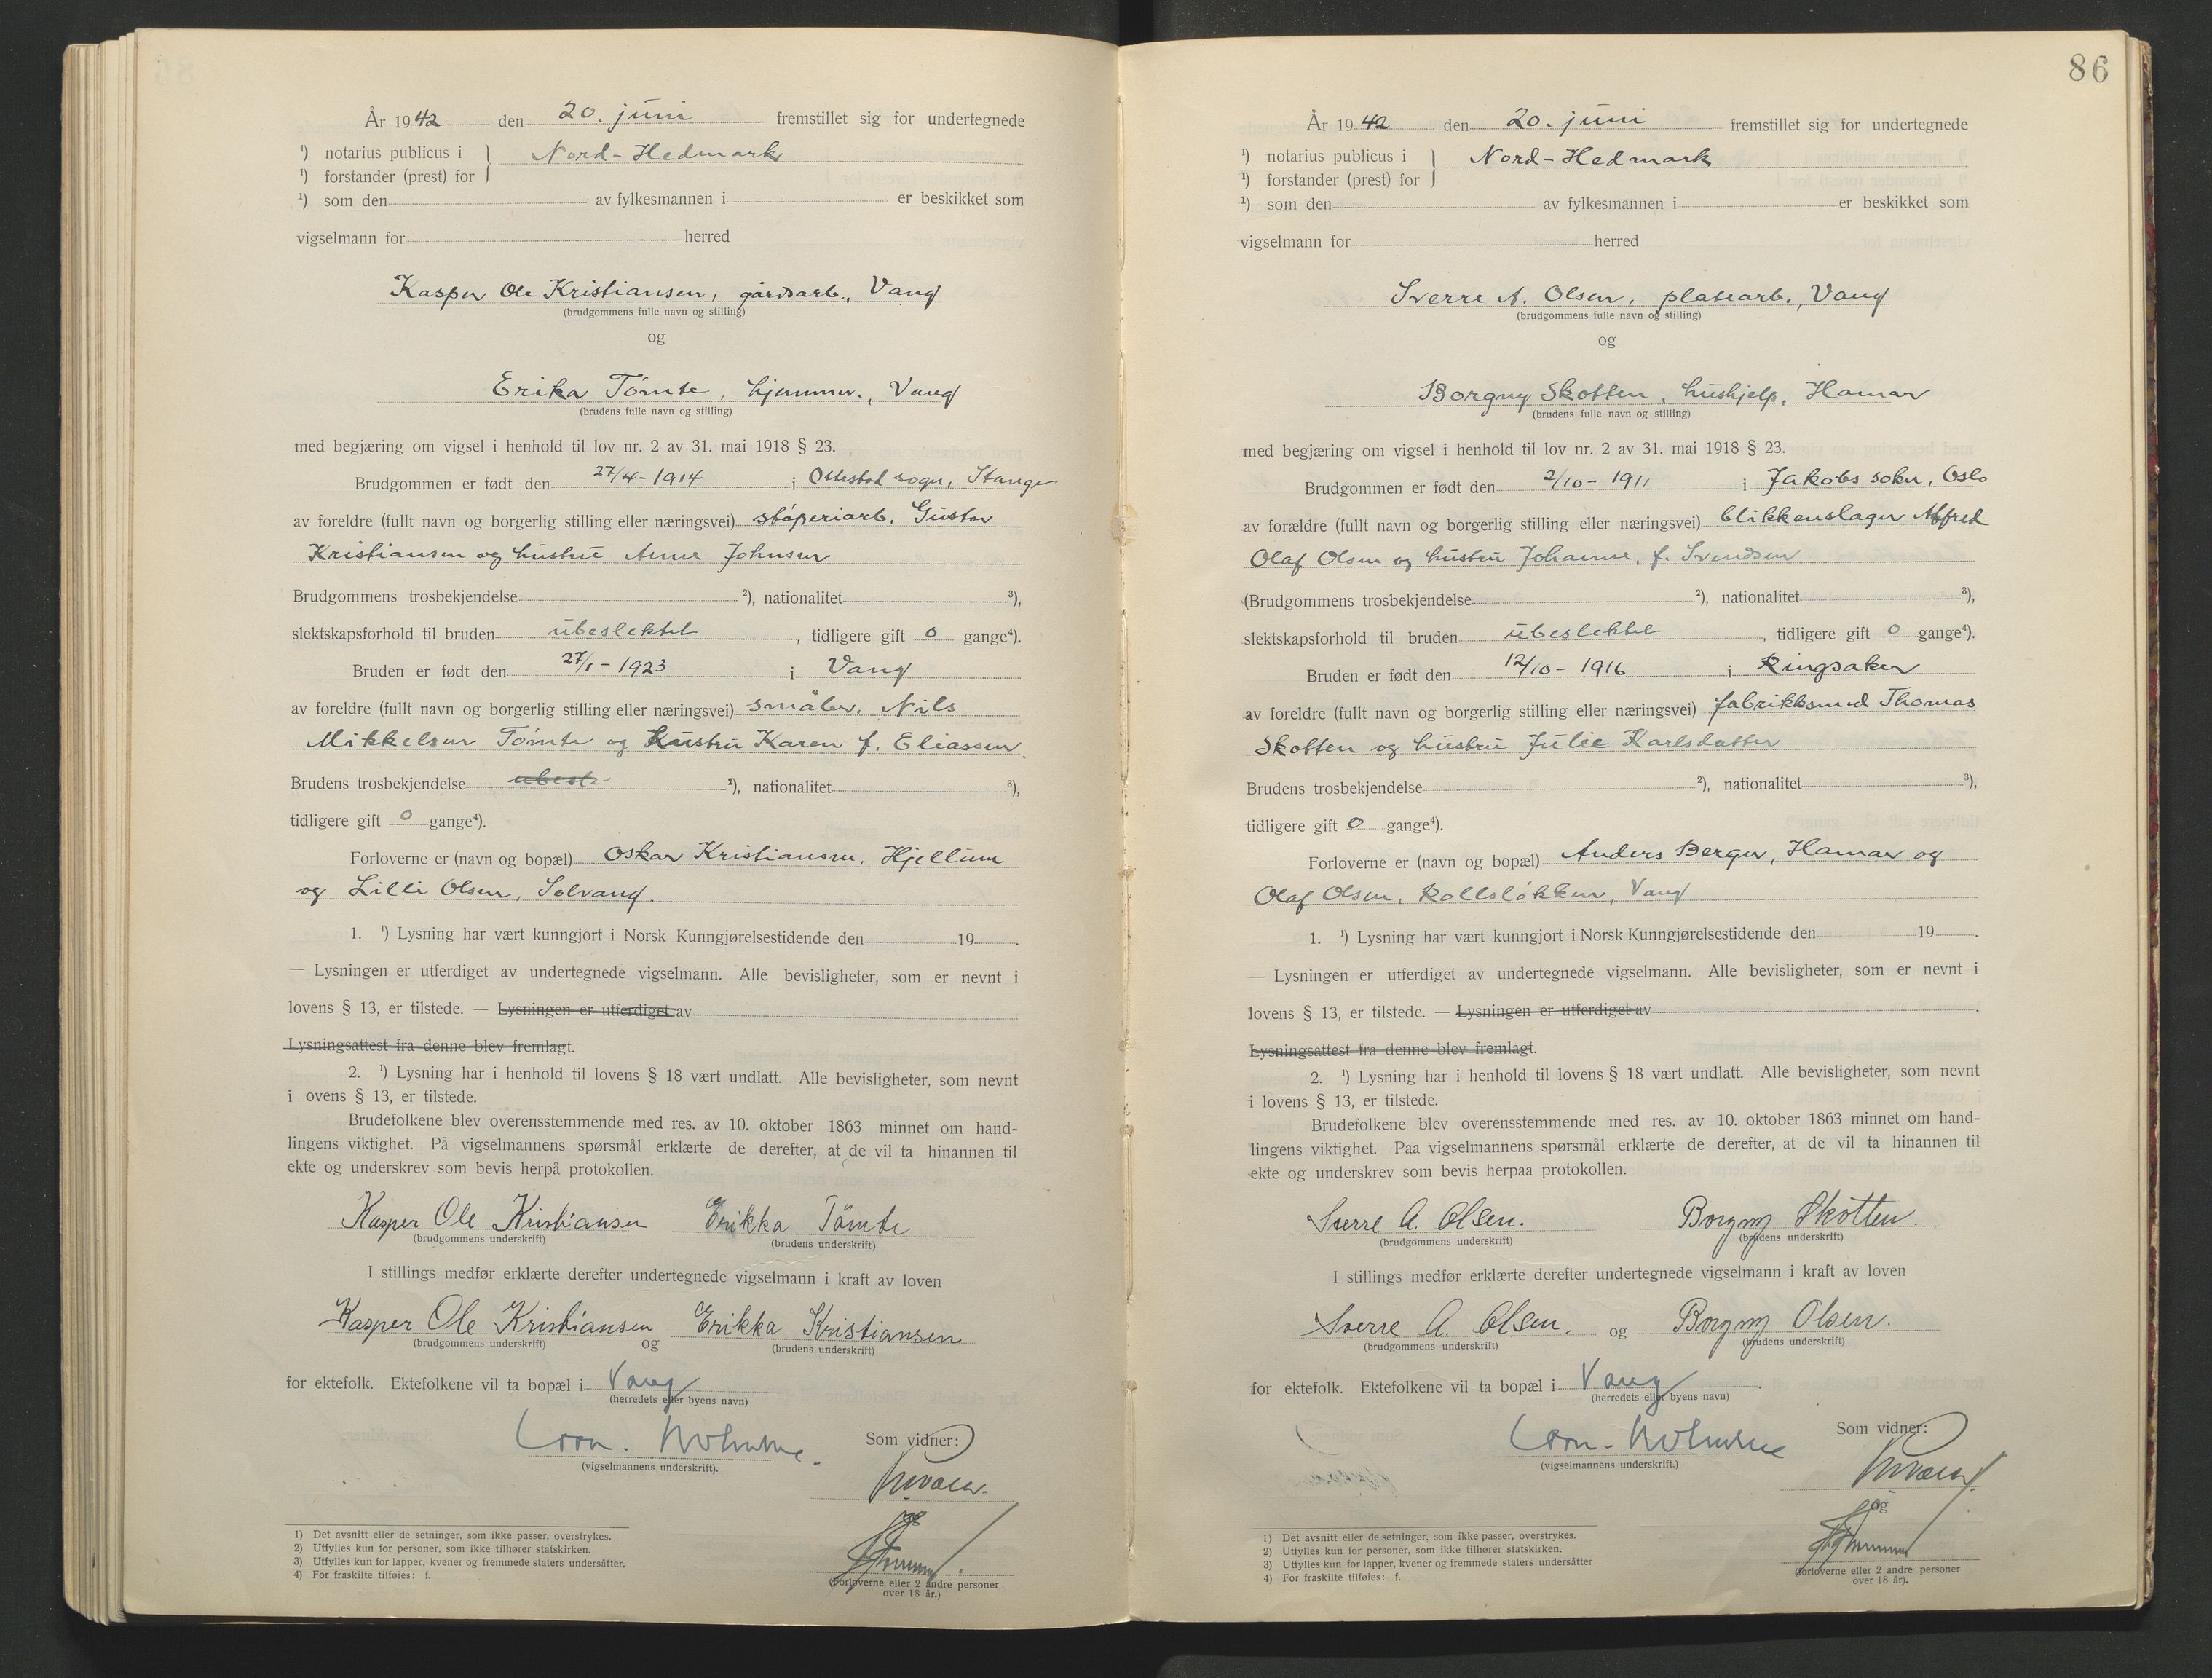 År 1942 den 20. juni fremstillet sig for undertegnede
¹) notarius publicus i } Nord-Hedmark
¹) forstander (prest) for
¹) som den av fylkesmannen i er beskikket som
vigselmann for herred
Kasper Ole Kristiansen, gårdsarb., Vang
(brudgommens fulle navn og stilling)
og
Erika Tömte, hjemmev., Vang
(brudens fulle navn og stilling)
med begjæring om vigsel i henhold til lov nr. 2 av 31. mai 1918 § 23.
Brudgommen er født den 27/4-1914 i Ottestad sogn, Stange
av foreldre (fullt navn og borgerlig stilling eller næringsvei) støperiarb. Gustav
Kristiansen og hustru Anne Johnsen
Brudgommens trosbekjendelse ²), nationalitet ³),
slektskapsforhold til bruden ubeslektet, tidligere gift 0 gange⁴).
Bruden er født den 27/1-1923 i Vang
av foreldre (fullt navn og borgerlig stilling eller næringsvei) småbr. Nils
Mikkelsen Tömte og hustru Karen f. Eliassen
Brudens trosbekjendelse ubesl ²), nationalitet ³),
tidligere gift 0 gange⁴).
Forloverne er (navn og bopæl) Oskar Kristiansen, Hjellum
og Lilli Olsen, Solvang.
1. ¹) Lysning har vært kunngjort i Norsk Kunngjørelsestidende den 19 .
— Lysningen er utferdiget av undertegnede vigselmann. Alle bevisligheter, som er nevnt i
lovens § 13, er tilstede. — Lysningen er utferdiget av
Lysningsattest fra denne blev fremlagt.
2. ¹) Lysning har i henhold til lovens § 18 vært undlatt. Alle bevisligheter, som nevnt
i ovens § 13, er tilstede.
Brudefolkene blev overensstemmende med res. av 10. oktober 1863 minnet om hand-
lingens viktighet. På vigselmannens spørsmål erklærte de derefter, at de vil ta hinannen til
ekte og underskrev som bevis herpå protokollen.
Kasper Ole Kristiansen Erikka Tömte
(brudgommens underskrift) (brudens underskrift)
I stillings medfør erklærte derefter undertegnede vigselmann i kraft av loven
Kasper Ole Kristiansen og Erikka Kristiansen
(brudgommens underskrift) (brudens underskrift)
for ektefolk. Ektefolkene vil ta bopæl i Vang
(herredets eller byens navn)
Som vidner:
(vigselmannens underskrift).
og
(Forloverne eller 2 andre personer
over 18 år.)
1) Det avsnitt eller de setninger, som ikke passer, overstrykes.
2) Utfylles kun for personer, som ikke tilhører statskirken.
3) Utfylles kun for lapper, kvener og fremmede staters undersåtter.
4) For fraskilte tilføies: f.
86
År 1942 den 20. juni fremstillet sig for undertegnede
¹) notarius publicus i } Nord-Hedmark
¹) forstander (prest) for
¹) som den av fylkesmannen i er beskikket som
vigselmann for herred
Sverre A. Olsen, platearb., Vang
(brudgommens fulle navn og stilling)
og
Borgny Skotten, hushjelp, Hamar
(brudens fulle navn og stilling)
med begjæring om vigsel i henhold til lov nr. 2 av 31. mai 1918 § 23.
Brudgommen er født den 2/10-1911 i Jakobs sokn, Oslo
av forældre (fullt navn og borgerlig stilling eller næringsvei) blikkenslager Alfred
Olaf Olsen og hustru Johanne, f. Svendsen
(Brudgommens trosbekjendelse ²), nationalitet ³),
slektskapsforhold til bruden ubeslektet, tidligere gift 0 gange⁴).
Bruden er født den 12/10-1916 i Ringsaker
av foreldre (fullt navn og borgerlig stilling eller næringsvei) fabrikksmed Thomas
Skotten og hustru Julie Karlsdatter
Brudens trosbekjendelse ²), nationalitet ³),
tidligere gift 0 gange⁴).
Forloverne er (navn og bopæl) Anders Berger, Hamar og
Olaf Olsen, Rollsløkken, Vang
1. ¹) Lysning har vært kunngjort i Norsk Kunngjørelsestidende den 19 .
— Lysningen er utferdiget av undertegnede vigselmann. Alle bevisligheter, som er nevnt i
lovens § 13, er tilstede. — Lysningen er utferdiget av .
Lysningsattest fra denne blev fremlagt.
2. ¹) Lysning har i henhold til lovens § 18 vært undlatt. Alle bevisligheter, som nevnt
i lovens § 13, er tilstede.
Brudefolkene blev overensstemmende med res. av 10. oktober 1863 minnet om hand-
lingens viktighet. Paa vigselmannens spørsmål erklærte de derefter, at de vil ta hinannen til
ekte og underskrev som bevis herpaa protokollen.
Sverre A. Olsen. Borgny Skotten.
(brudgommens underskrift) (brudens underskrift)
I stillings medfør erklærte derefter undertegnede vigselmann i kraft av loven
Sverre A. Olsen. og Borgny Olsen.
(brudgommens underskrift) (brudens underskrift)
for ektefolk. Ektefolkene vil ta bopæl i Vang .
(herredets eller byens navn)
Som vidner:
(vigselmannens underskrift.)
og
(forloverne eller 2 andre personer
over 18 år).
1) Det avsnitt eller de setninger, som ikke passer, overstrykes.
2) Utfylles kun for personer, som ikke tilhører statskirken.
3) Utfylles kun for lapper, kvener og fremmede staters undersåtter
4) For fraskilte tilføies: f.